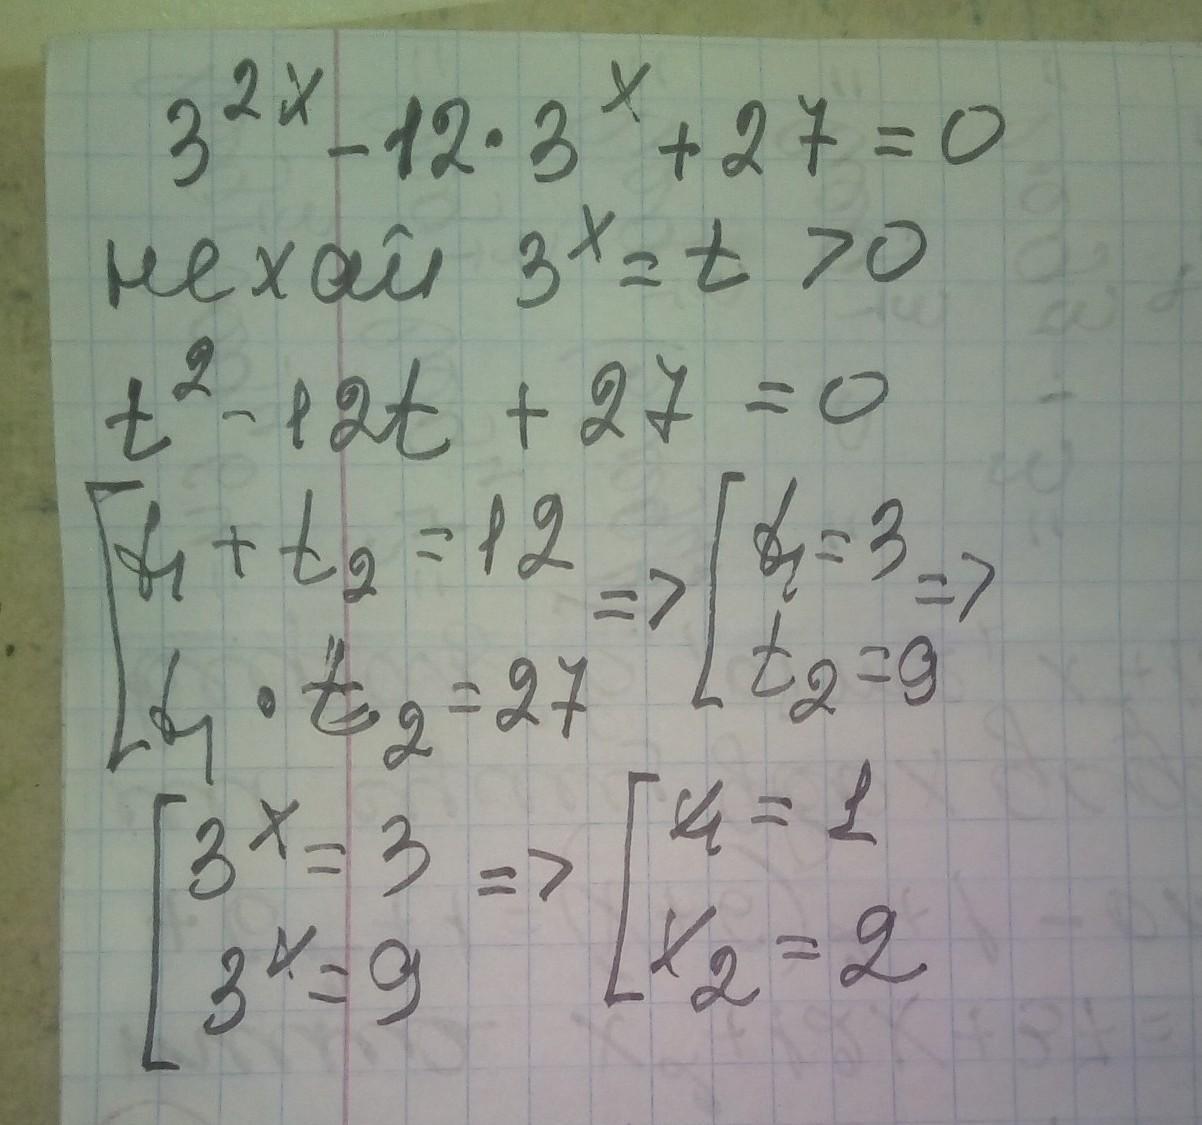 3^{2x} - 12 · 3^x + 27 = 0
нехай 3^x = t > 0
t^2 - 12t + 27 = 0
[ t_1 + t_2 = 12
t_1 · t_2 = 27 => [ t_1 = 3
t_2 = 9 =>
[ 3^x = 3
3^x = 9 => [ x_1 = 1
x_2 = 2